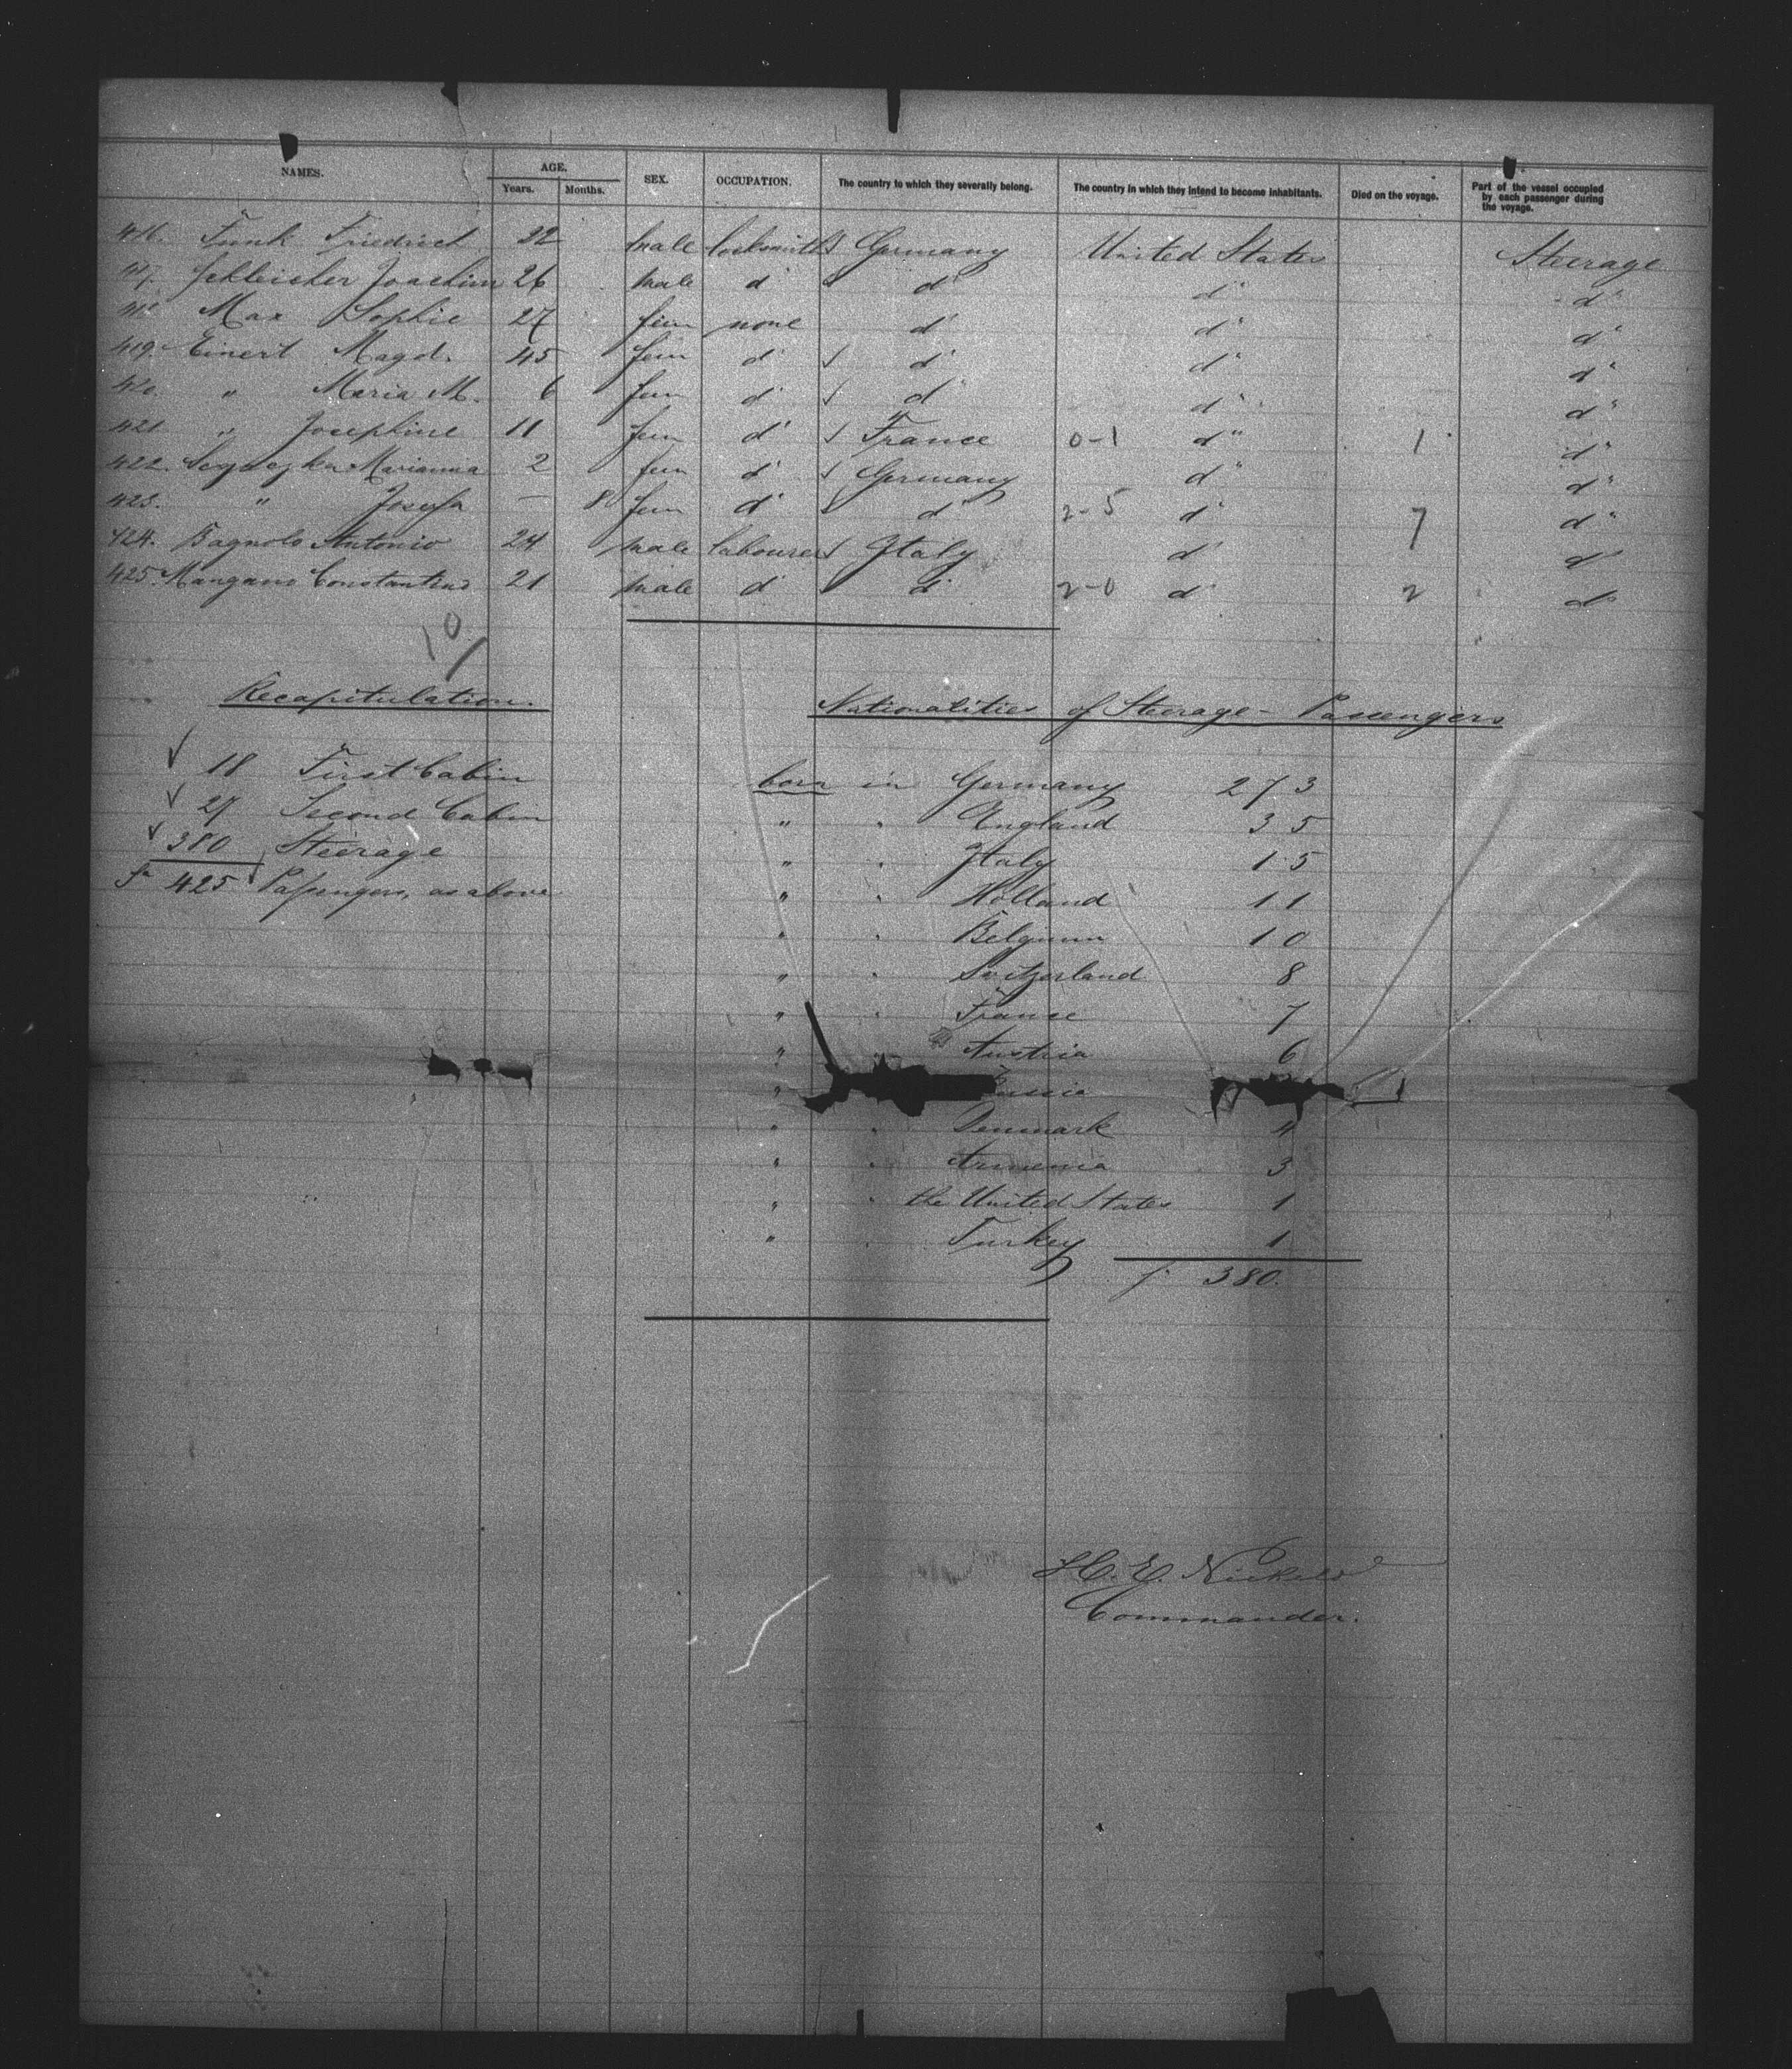 NAMES. AGE. SEX. OCCUPATION. The country to which they severally belong. The country in which they intend to become inhabitants. Died on the voyage. Part of the vessel occupied by each passenger during the voyage.
Years. Months.
416. Funk Friedrich 32 male locksmith Germany United States Steerage
417. Schleicher Joachim 26 male d° d° d° d°
418 Max Sophie 27 fem none d° d° d°
419. Einert Magd. 45 fem d° d° d° d°
420. " Maria M. 6 fem d° d° d° d°
421 " Josephine 11 fem d° France 0-1 d° 1 d°
422. Marianna 2 fem d° Germany d° d°
423. " Josefa — 8 fem d° d° 2-5 d° 7 d°
424. Bagnolo Antonio 24 male labourer Italy d° d°
425. Mangano Constantino 21 male d° d° 2-0 d° 2 d°
10/
Recapitulation. Nationalities of Steerage-Passengers
18 First Cabin born in Germany 273
27 Second Cabin " " England 35
380 Steerage " " Italy 15
425 Passengers, as above " " Holland 11
" " Belgium 10
" " Switzerland 8
" " France 7
" " Austria 6
" ussia
" " Denmark 4
" " Armenia 3
" " the United States 1
" " Turkey 1
380.
H. E. Nickels
Commander.